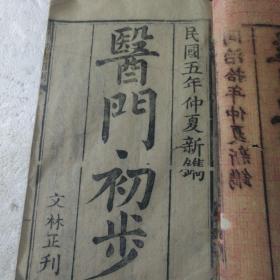 民國五年仲夏新鐫
醫門初步
文林正刊
同治拾年仲夏新鐫